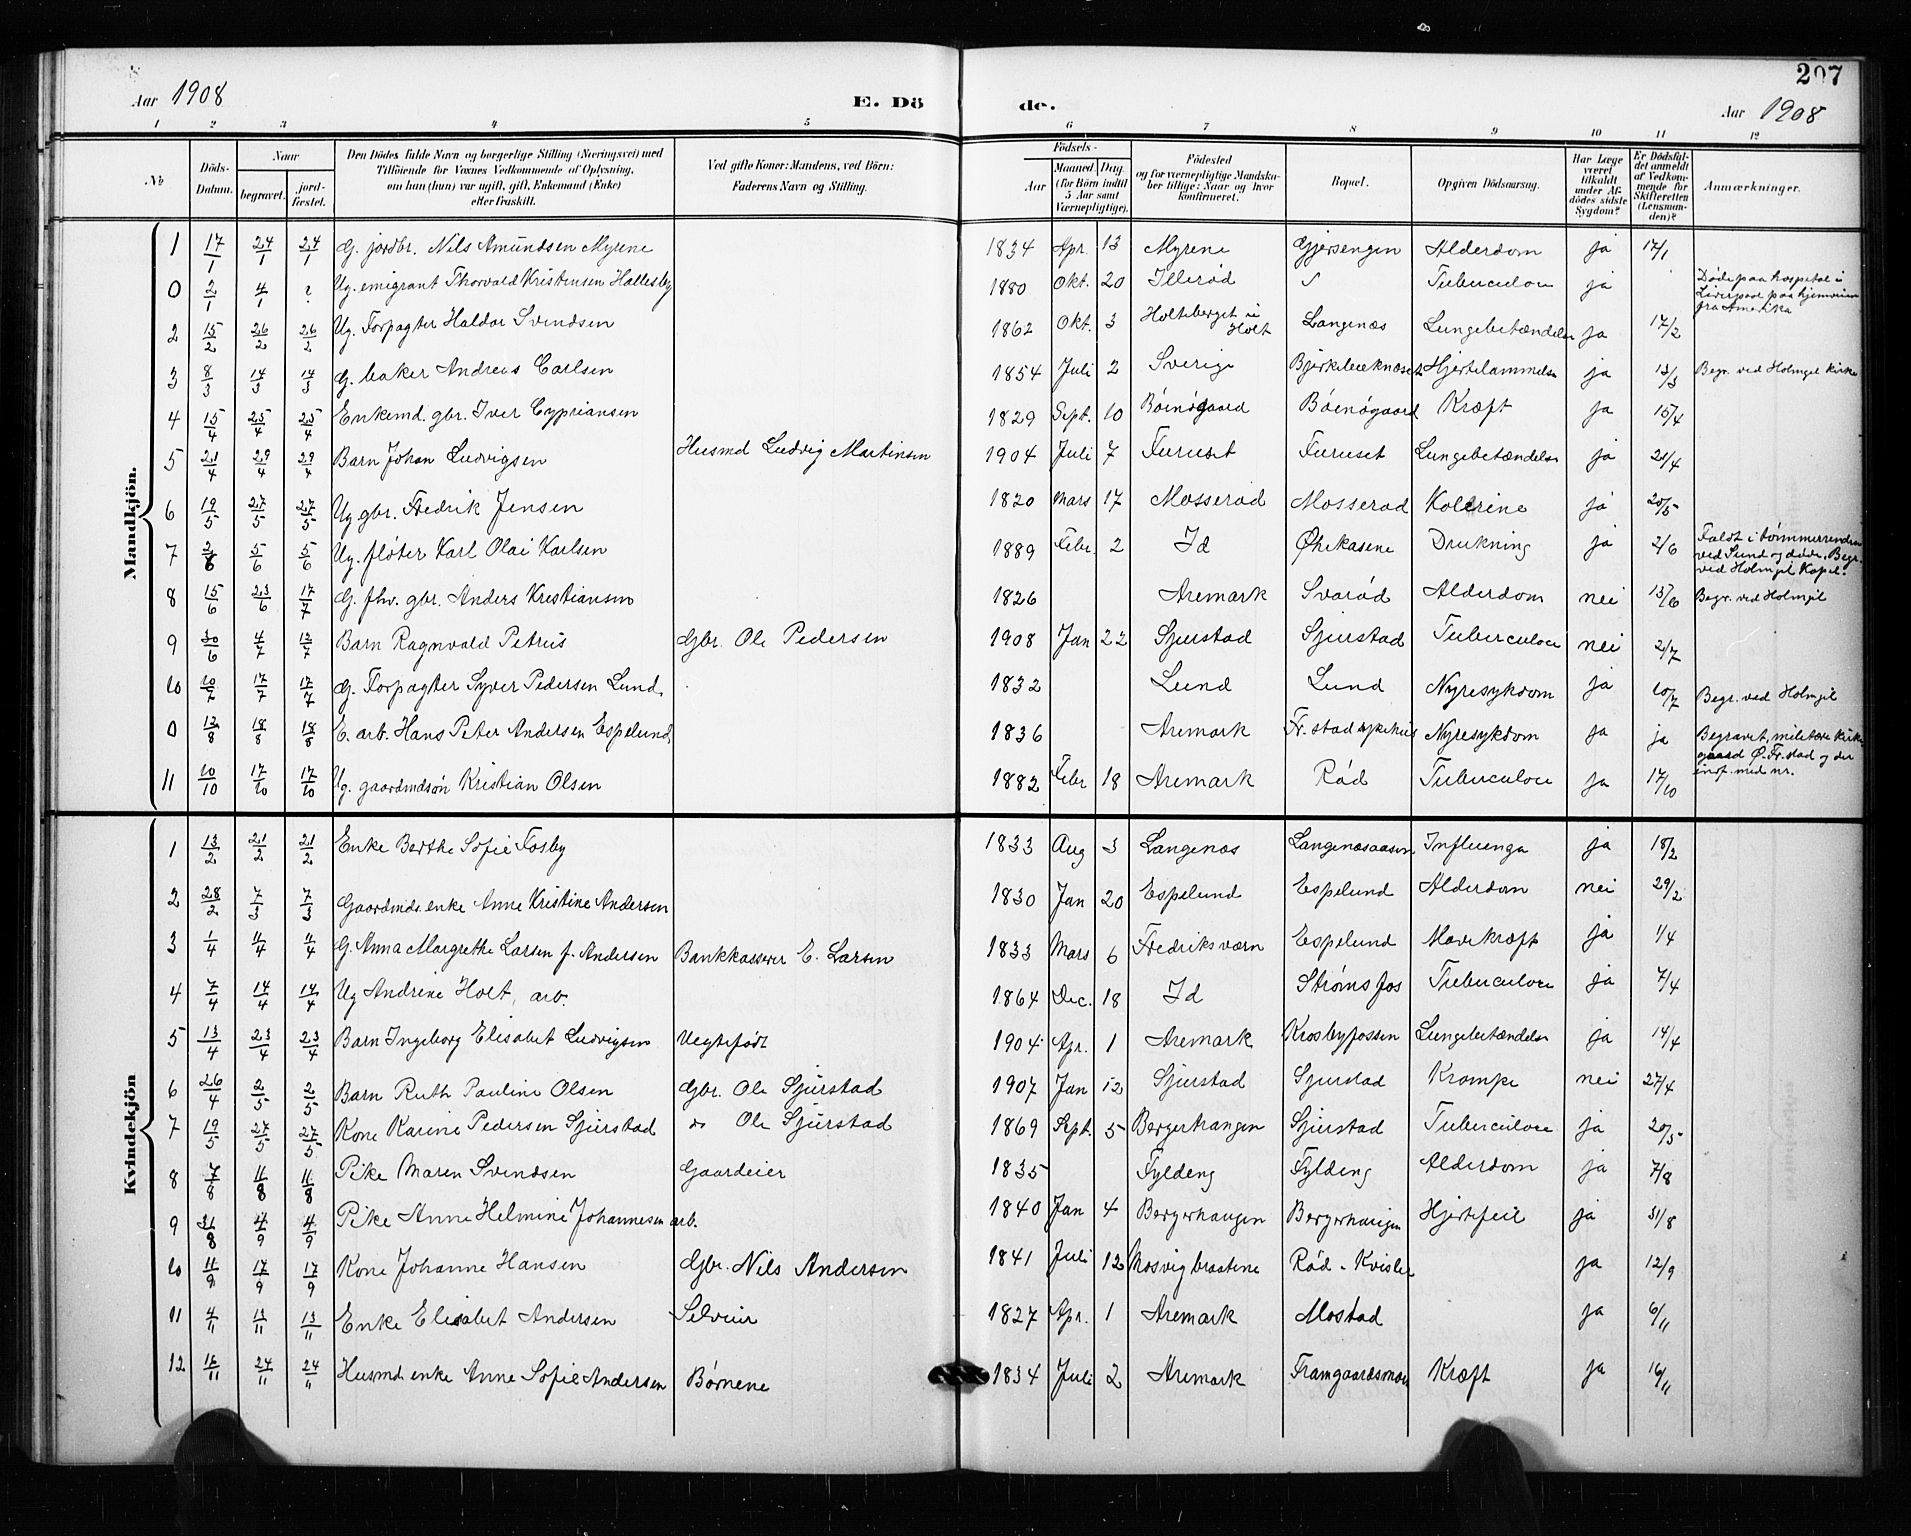 207
Aar 1908 E. Dö de. Aar 1908
1 2 3 4 5 6 7 8 9 10 11 12
No Döds-Datum. Naar begravet. jord-fæstet. Den Dödes fulde Navn og borgerlige Stilling (Næringsvei) med Tilföiende for Voxnes Vedkommende af Oplysning, om han (hun) var ugift, gift, Enkemand (Enke) eller fraskilt. Ved gifte Koner: Mandens, ved Börn: Faderens Navn og Stilling. Födsels- Aar Maaned. Dag (for Börn indtil 5 Aar samt Værnepligtige). Födested og for værnepligtige Mandskaber tillige: Naar og hvor konfirmeret. Bopæl. Opgiven Dödsaarsag. Har Læge været tilkaldt under Afdödes sidste Sygdom? Er Dödsfaldet anmeldt af Vedkommende for Skifteretten (Lensmanden)? Anmærkninger.
Mandkjön.
1 17/1 24/1 24/1 G. jordbr. Nils Amundsen Myrene 1834 Apr 13 Myrene Gjersengen Alderdom ja 17/1
0 2/1 4/1 ? Ug. emigrant Thorvald Kristensen Hallesby 1880 Okt. 20 Illerød Tuberculose ja Døde paa hospital i Liverpool paa hjemveien fra Amerika
2 15/2 26/2 26/2 Ug. Forpagter Haldor Svendsen 1862 Okt. 3 Holteberget i Holt Langenæs Lungebetændelse ja 17/2
3 8/3 14/3 14/3 G. baker Andreas Carlsen 1854 Juli 2 Sverige Bjerkebæknæset Hjertelammelse ja 13/3 Begr. ved Holmgil kirke
4 15/4 25/4 25/4 Enkemd. gbr. Iver Cypriansen 1829 Sept. 10 Bøensgaard Bøensgaard Kræft ja 15/4
5 21/4 29/4 29/4 Barn Johan Ludvigsen Husmd Ludvig Martinsen 1904 Juli 7 Furuset Furuset Lungebetændelse ja 21/4
6 19/5 27/5 27/5 Ug gbr. Fredrik Jensen 1820 Mars 17 Mosserød Mosserød Kolerine ja 20/5
7 2/6 5/6 5/6 Ug. fløter Karl Olai Karlsen 1889 Febr. 2 Id Øhekasene Drukning ja 2/6 Faldt i tømmerrenden ved Sund og døde. Begr. ved Holmgil Kapel.
8 15/6 23/6 17/7 G. fhv. gbr. Anders Kristiansen 1826 Aremark Svarød Alderdom nei 15/6 Begr. ved Holmgil
9 30/6 4/7 12/7 Barn Ragnvald Petrus Gbr. Ole Pedersen 1908 Jan 22 Sjurstad Sjurstad Tuberculose nei 2/7
10 10/7 17/7 17/7 G. Forpagter Syver Pedersen Lund. 1832 Lund Lund Nyresykdom ja 10/7 Begr. ved Holmgil
0 12/8 18/8 18/8 E. arb. Hans Peter Andersen Espelund. 1836 Aremark Fr.stad sykehus Nyresykdom ja ja Begravet, militære kirkegaard Ø. Fr.stad og der indf. med nr.
11 10/10 17/10 17/10 Ug. gaardmdsøn Kristian Olsen 1882 Febr 18 Aremark Rød Tuberculose ja 17/10
Kvindekjön
1 13/2 21/2 21/2 Enke Berthe Sofie Fosby 1833 Aug 3 Langenæs Langenæsaasen Influenga ja 18/2
2 28/2 7/3 7/3 Gaardmds. enke Anne Kristine Andersen 1830 Jan 20 Espelund Espelund Alderdom nei 29/2
3 1/4 11/4 11/4 G. Anna Margrethe Larsen f. Andersen Bankkasserer E. Larsen 1833 Mars 6 Fredriksværn Espelund Mavekræft ja 1/4
4 7/4 14/4 14/4 Ug Andrine Holt, arb. 1864 Dec. 18 Id Strømsfos Tuberculose ja 7/4
5 13/4 23/4 23/4 Barn Ingeborg Elisabet Ludvigsen Uegtefødt 1904 Apr. 1 Aremark Krosbyfossen Lungebetændelse ja 14/4
6 26/4 2/5 2/5 Barn Ruth Pauline Olsen Gbr. Ole Sjurstad 1907 Jan 12 Sjurstad Sjurstad Krampe nei 27/4
7 19/5 27/5 27/5 Kone Karine Pedersen Sjurstad do Ole Sjurstad 1869 Sept. 5 Bergerhangen Sjurstad Tuberculose ja 20/5
8 7/8 11/8 11/8 Pike Maren Svendsen Gaardeier 1835 Fyldeng Fyldeng Alderdom ja 7/8
9 31/8 4/9 4/9 Pike Anne Helmine Johannesen arb. 1840 Jan 4 Bergerhaugen Bergerhaugen Hjertefeil ja 31/8
10 11/9 17/9 17/9 Kone Johanne Hansen Gbr. Nils Andersen 1841 Juli 12 Mosvigbraatene Rød - Kvisler ja 12/9
11 4/11 13/11 13/11 Enke Elisabet Andersen Selveier 1827 Apr. 1 Aremark Mostad ja 6/11
12 16/11 24/11 24/11 Husmd enke Anne Sofie Andersen Børnene 1834 Juli 2 Aremark Framgaardsmoen Kræft ja 16/11